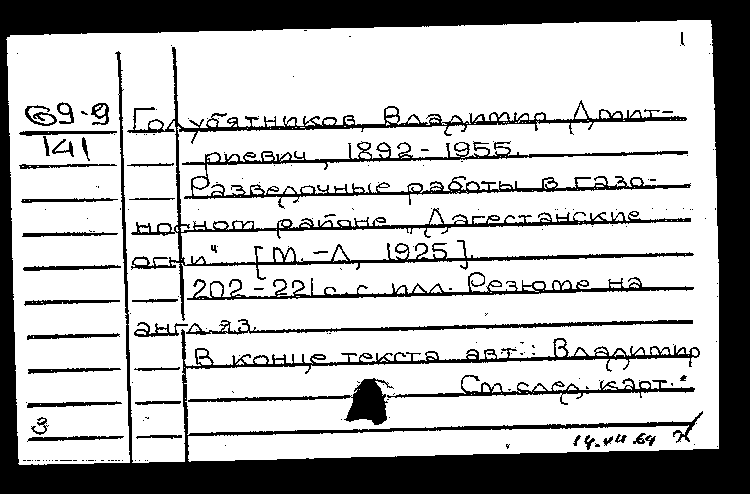 1
69-9 Голубятников, Владимир Дмит-
141 риевич, 1892-1955.
Разведочные работы в газо-
носном районе „Дагестанские
огни“ [М.-Л, 1925].
202-221 с. с илл. Резюме на
англ. яз.
В конце текста авт.: Владимир
См. след. карт.
3